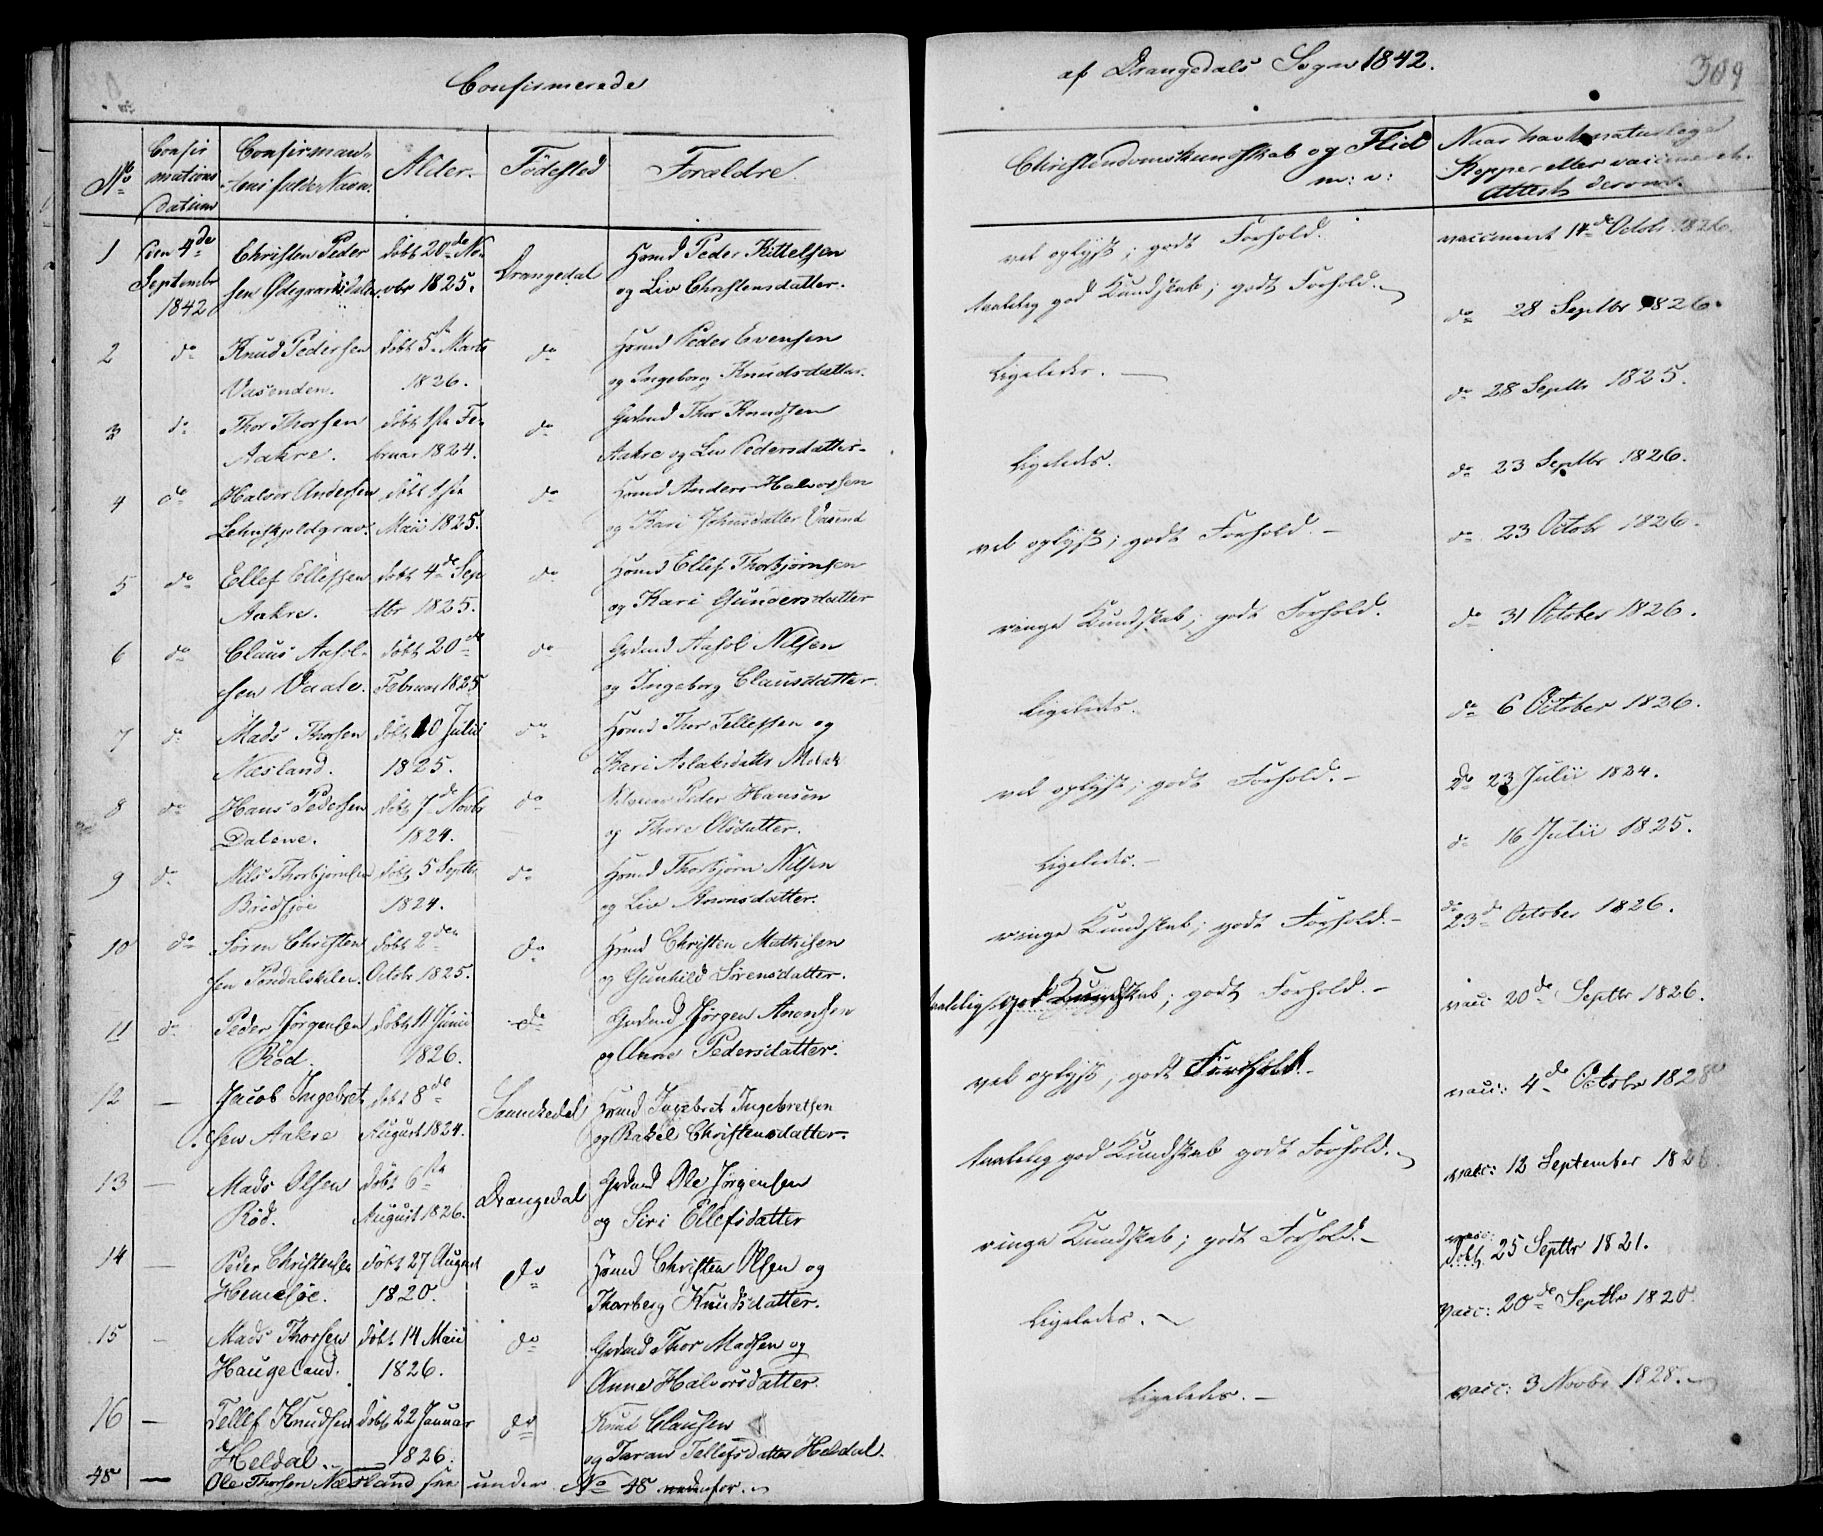 Confirmerede
af Drangedals Sogn 1842.
309
No
Confirmations Datum
Confirmantens fulde Navn.
Alder.
Födested
Forældre.
Christendomskundskab og Flid m: v:
Naar havt naturlige Kopper eller vaccineret. Attest derom.
1
den 4de September 1842
Christen Pedersen
döbt 20de Novbr 1825.
Drangedal
Hsmd Peder Kittelsen
og Liv Christensdatter.
vel oplyst; godt Forhold.
vaccineret 14de Octobr 1826.
2
do
Knud Pedersen
Vasenden.
döbt 5te Marts
1826.
do
Hsmd Peder Evensen
og Ingeborg Knudsdatter.
taalelig god Kundskab; godt Forhold.
do 28 Septbr 1826.
3
do
Thor Thorsen
Aakre.
döbt 1ste Februar 1824.
do
Grdmd Thor Knudsen
Aakre og Liv Pedersdatter.
Ligeledes.
do 28 Septbr 1825.
4
do
Halvor Andersen
döbt 1ste
Maii 1825.
do
Hsmd Anders Halvorsen
og Kari Johnsdatter Vasend
Ligeledes.
do 23 Septbr 1826.
5
do
Ellef Ellefsen
Aakre.
döbt 4de Septbr 1825.
do
Hsmd Ellef Thorbjörnsen
og Kari Gundersdatter
vel oplyst; godt Forhold.
do 23 Octobr 1826.
6
do
Claus Aasolsen Vaale.
döbt 20de
Februar 1825
do
Grdmd Aasol Nilsen
og Ingeborg Clausdatter.
ringe Kundskab; godt Forhold.
do 31 October 1826.
7
do
Mads Thorsen
Næsland.
döbt 10 Julii
1825.
do
Hsmd Thor Tellefsen og
Kari Aslaksdatter
Ligeledes.
do 6 October 1826.
8
do
Hans Pedersen
Dalene.
döbt 7de Novbr
1824.
do
Peder Hansen
og Thore Olsdatter.
vel oplyst; godt Forhold.
do 23 Julii 1824.
9
do
Nils Thorbjörnsen
döbt 5 Septbr
1824.
do
Hsmd Thorbjörn Nilsen
og Liv Anonsdatter.
Ligeledes.
do 16 Julii 1825.
10
do
Sören Christensen
döbt 2den
Octobr. 1825.
do
Hsmd Christen Mathisen
og Gunhild Sörensdatter.
ringe Kundskab; godt Forhold.
do 23de October 1826.
11
do
Peder Jörgensen
Röd.
döbt 11 Junii
1826.
do
Grdmd Jörgen Anonsen
og Anne Pedersdatter.
taalelig god Kundskab; godt Forhold.
vacc: 20de Septbr 1826.
12
—
Jacob Ingebretsen Aakre
döbt 8de
August 1824.
Sannikedal
Hsmd Ingebret Ingebretsen
og Rakel Christensdatter.
vel oplyst, godt Forhold.
vacc: 4de Octobr 1828
13
—
Mads Olsen
Röd.
döbt 6te
August 1826.
Drangedal
Grdmd Ole Jörgensen
og Siri Ellefsdatter
taalelig god Kundskab godt Forhold.
vacc: 12 September 1826.
14
—
Peder Christensen
döbt 27 August
1820.
do
Hsmd Christen Olsen og
Thorberg Knudsdatter.
ringe Kundskab; godt Forhold.
vacc: döbt 25 Septbr 1821.
15
—
Mads Thorsen
Haugeland.
döbt 14 Maii
1826.
do
Grdmd Thor Madsen og
Anne Halvorsdatter.
Ligeledes.
vacc: 20de Septbr 1820.
16
—
Tellef Knudsen
Heldal.
döbt 22 Januar
1826.
do
Knud Clausen
og Taran Tellefsdatter Heldal.
Ligeledes.
vacc: 3 Novbr 1828.
48
—
Ole Thorsen Næsland see under No 48 nedenfor.